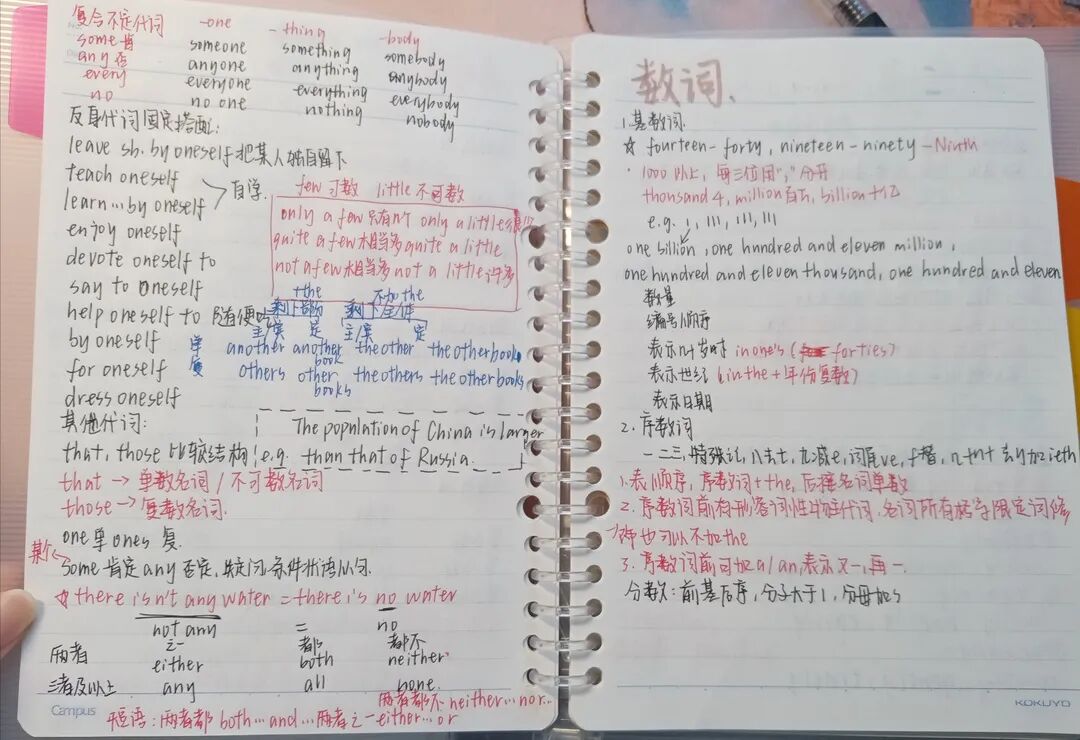 复合不定代词 -one -thing -body
some 肯 someone something somebody
any 否 anyone anything anybody
every everyone everything everybody
no no one nothing nobody
反身代词固定搭配:
leave sb. by oneself 把某人独自留下
teach oneself
learn…by oneself 自学
enjoy oneself
devote oneself to
say to oneself
help oneself to 随便吃
by oneself
for oneself
dress oneself
few 可数 little 不可数
only a few 只有几个 only a little
quite a few 相当多 quite a little
not a few 相当多 not a little 许多
+the 不加the
剩下部分 剩下全体
主/宾 定 主/宾 定
单 another another book the other the other book
复 others other books the others the other books
其他代词:
that, those 比较结构 e.g. The popnlation of China is larger
than that of Russia.
that → 单数名词 / 不可数名词
those → 复数名词.
one 单 ones 复.
某个
some 肯定 any 否定, 疑问, 条件状语从句.
☆ there isn't any water = there is no water
not any = no
之一 都 都不
两者 either both neither
三者及以上 any all none
两者都不 neither…nor…
短语: 两者都 both…and… 两者之一 either…or
Campus
数词.
1. 基数词.
☆ fourteen-forty, nineteen-ninety-Ninth
1000以上, 每三位用","分开
thousand 千, million 百万, billion 十亿
e.g. 1, 111, 111, 111
one billion, one hundred and eleven million,
one hundred and eleven thousand, one hundred and eleven
数量
编号/顺序
表示几十岁时 in one's (forties)
表示世纪 (in the + 年份复数)
表示日期
2. 序数词
一二三, 特殊记, 八去t, 九除e, ve, f替,
1. 表顺序, 序数词+the, 后接名词单数
2. 序数词前有形容词性物主代词, 名词所有格等限定词修
饰也可以不加the
3. 序数词前可加a/an, 表示又一, 再一.
分数: 前基后序, 分子大于1, 分母加s
KOKUYO